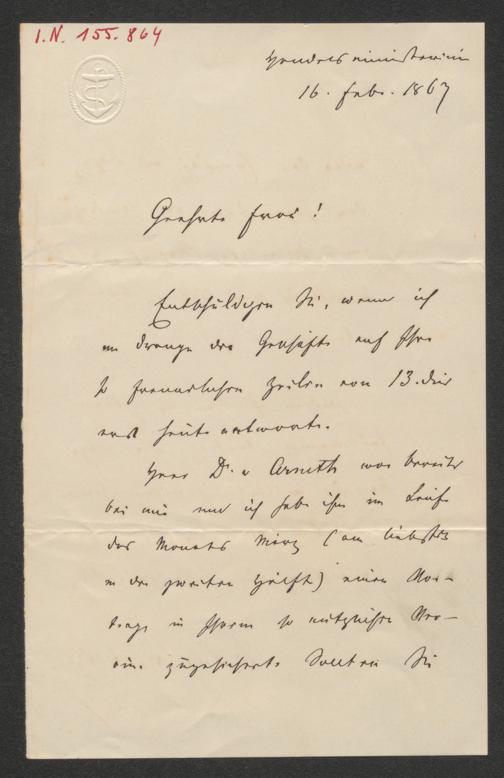 I.N. 155.864
Handelsministerium
16. Febr. 1867
Geehrte Frau!
Entschuldigen Sie, wenn ich
im Drange der Geschäfte auf Ihre
freundlichen Zeilen vom 13. dies
erst heute antworte.
Herr Dr. v Arneth war bereits
bei mir und ich habe ihm im Laufe
des Monats März (am liebsten
in der zweiten Hälfte) einen Vor-
trag in Ihrem so nützlichen Ver-
ein zugesichert. Sollten Sie